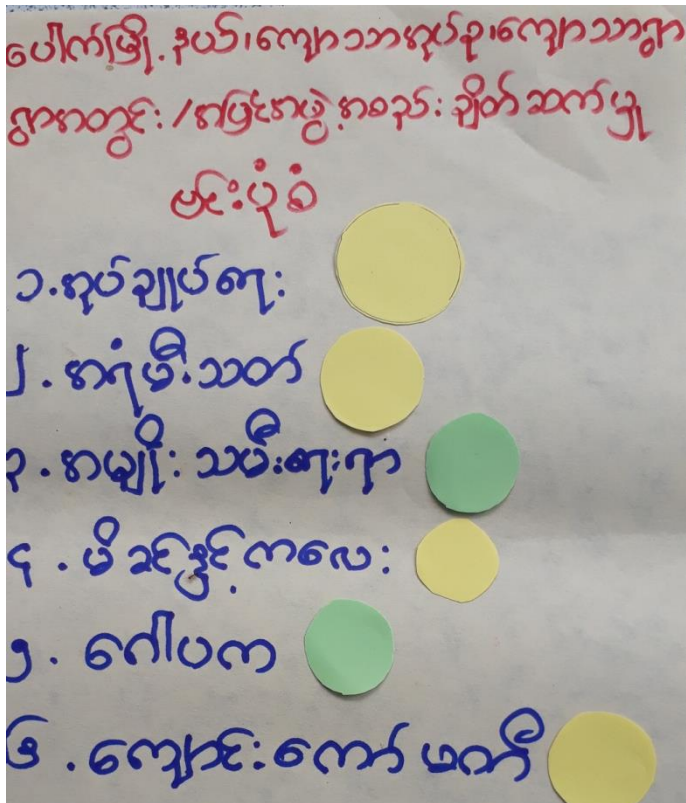 ပေါက်မြို့နယ်၊ကျောသာအုပ်စု၊ကျောသာရွာ
ရွာအတွင်း/အပြင်အဖွဲ့အစည်းချိတ်ဆက်မှု
ဗင်းပုံစံ
၁.အုပ်ချုပ်ရေး
၂.အရံမီးသတ်
၃.အမျိုးသမီးရေးရာ
၄.မိခင်နှင့်ကလေး
၅.ဂေါပက
၆.ကျောင်းကော်မတီ